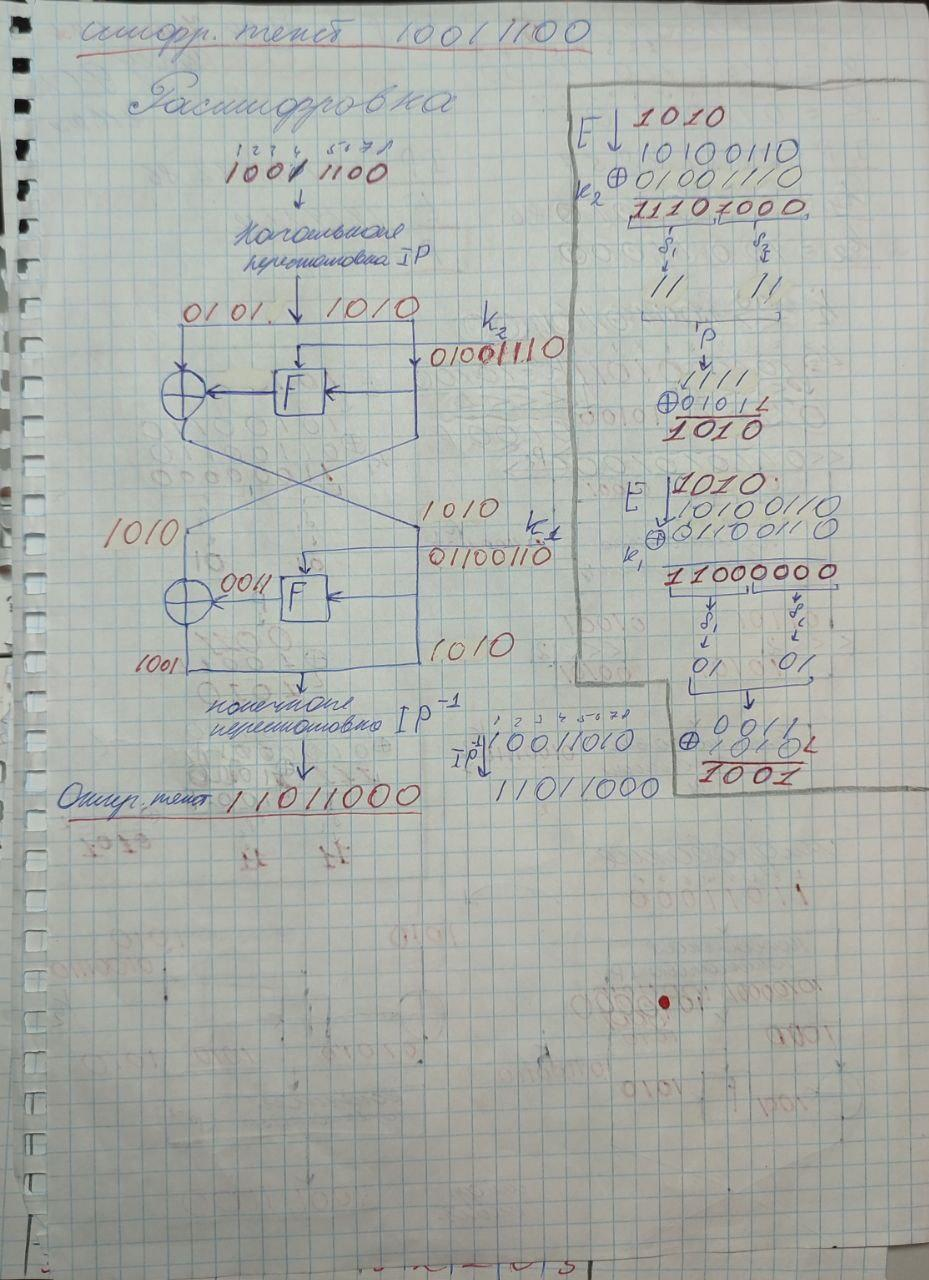 шифр. текст 10011100
Расшифровка
1 2 3 4 5 6 7 8
1001 1100
Начальная
перестановка IP
0101 1010
K2
01001110
F
1010
1010
K1
01100110
0011
F
1001
1010
конечная
перестановка IP-1
Откр. текст 11011000
1 2 3 4 5 6 7 8
10011010
IP-1
11011000
1010
E
10100110
⊕ 01001110
K2
1110 1000
S1 S2
11 11
P
1111
⊕ 0101 L
1010
E 1010
10100110
⊕ 01100110
K1
11000000
S1 S2
01 01
0011
⊕ 1010 L
1001